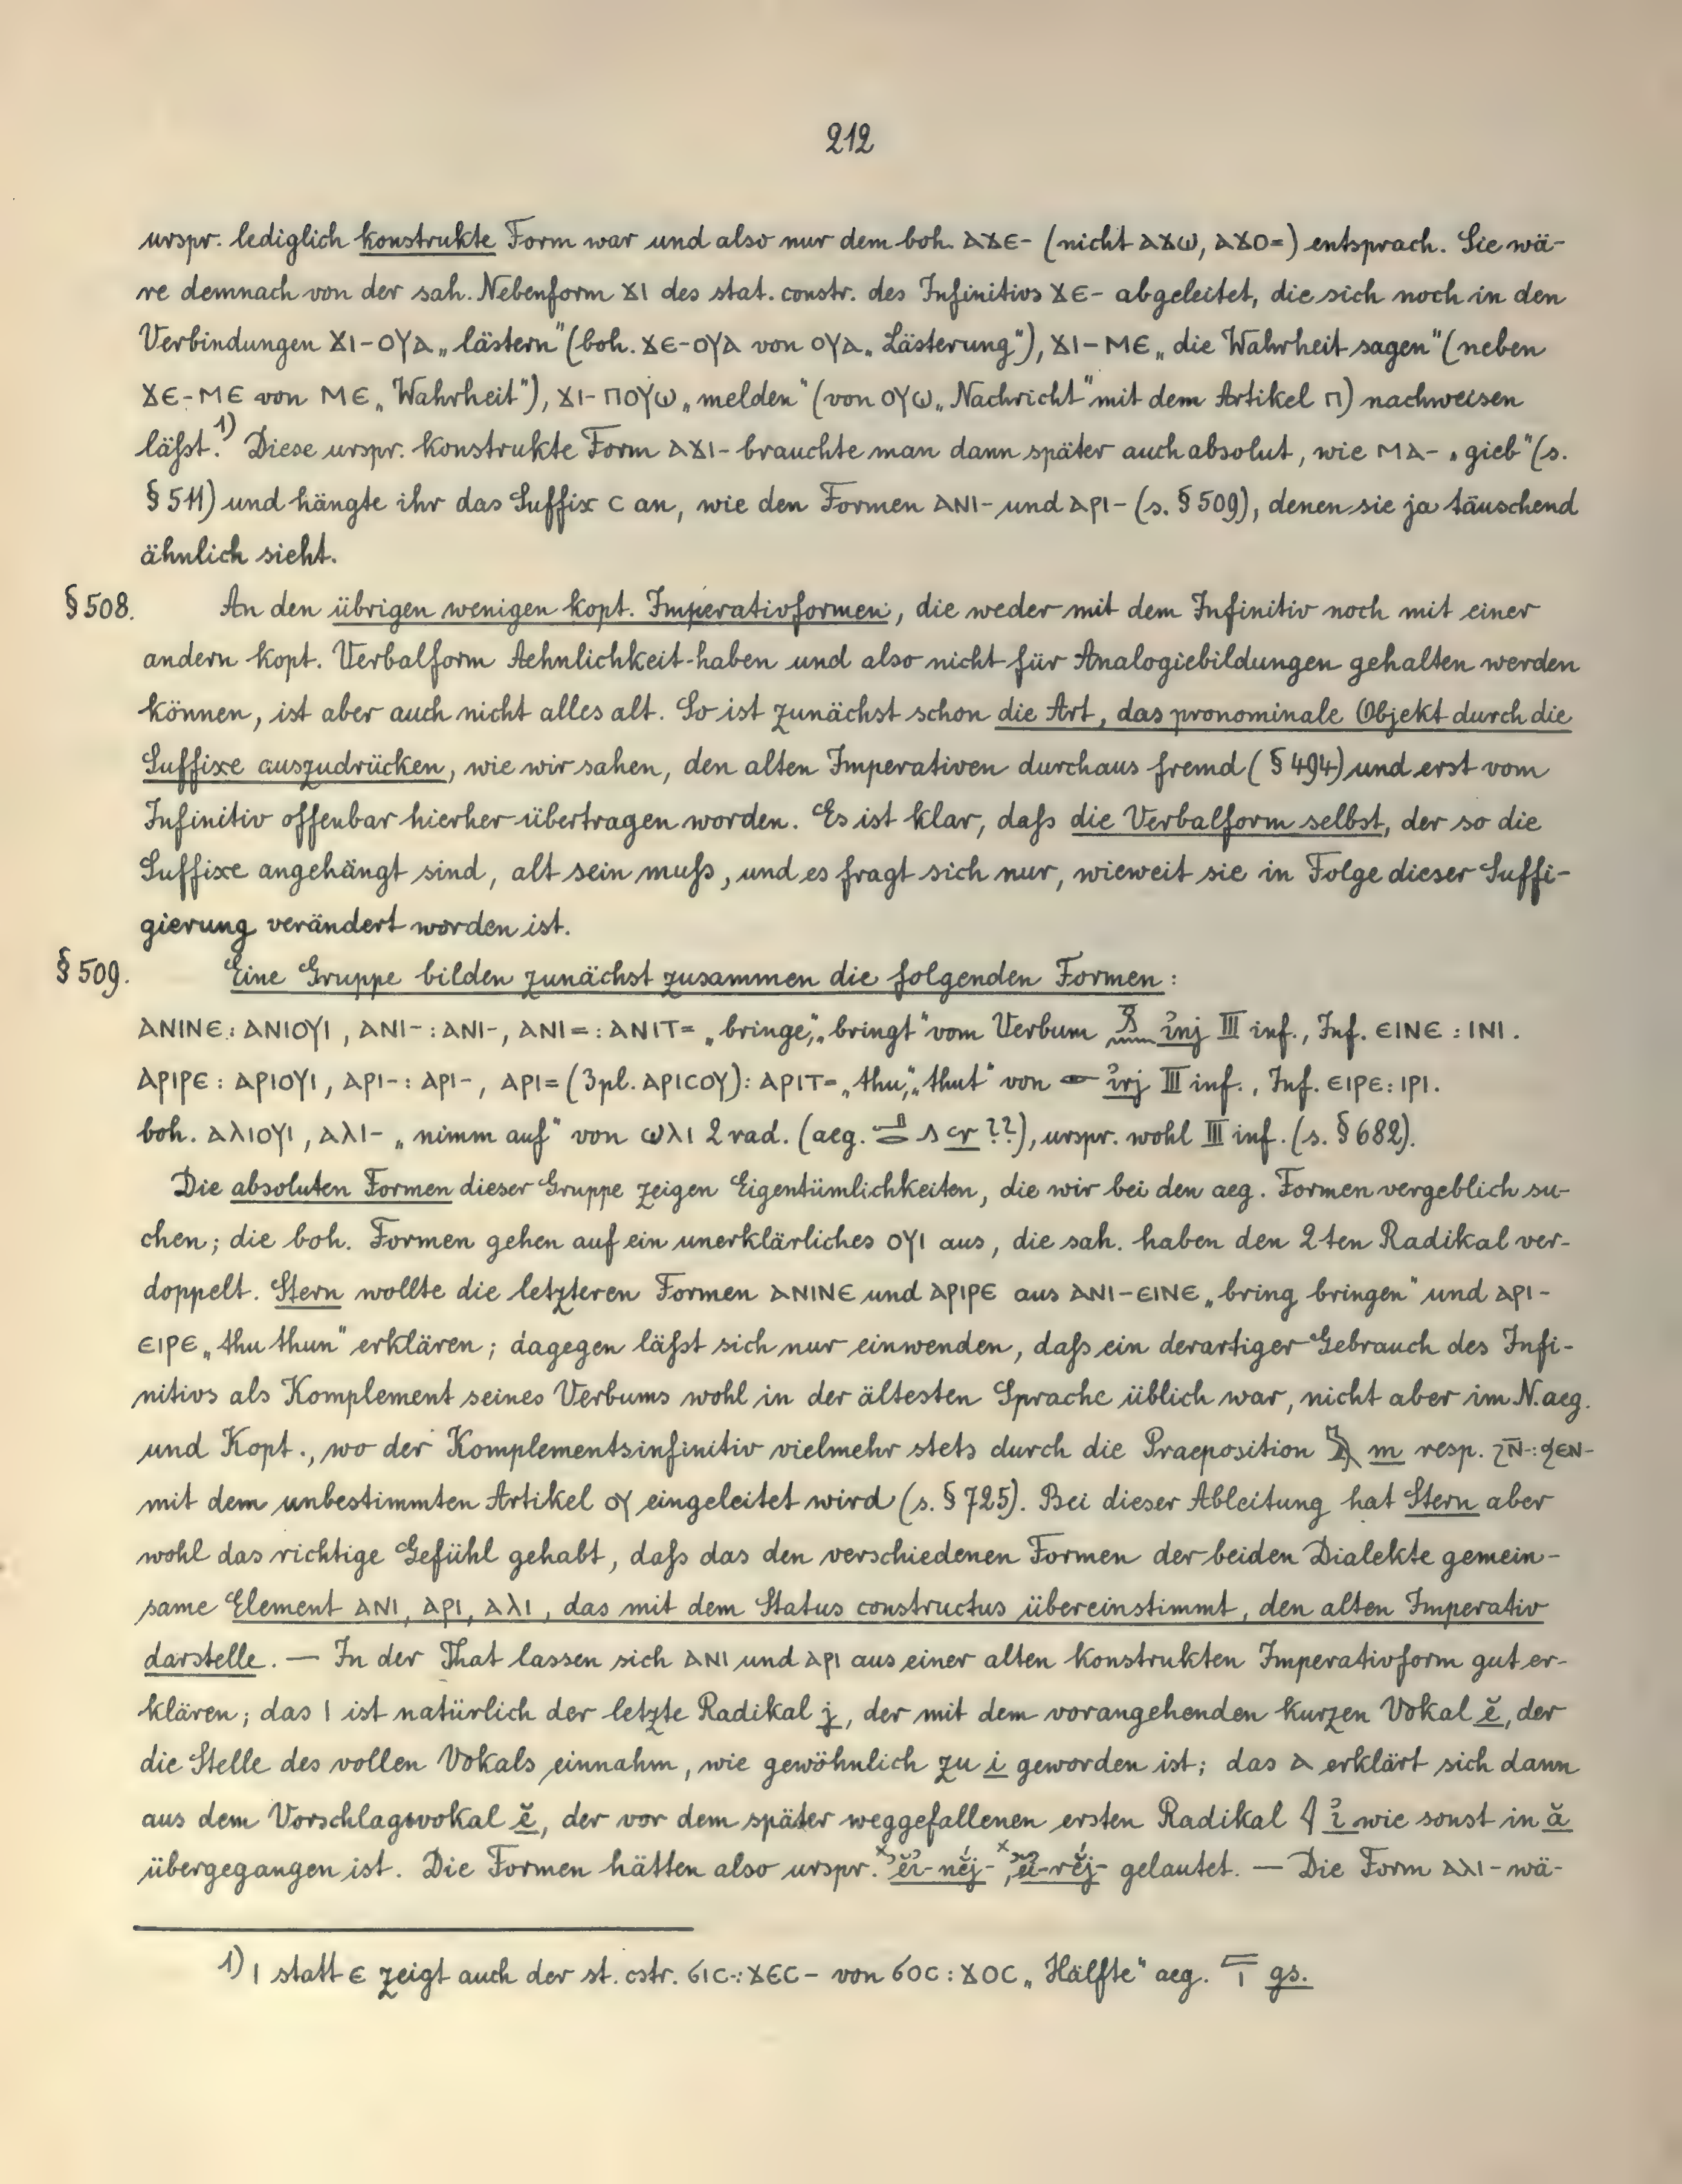 212
urspr. lediglich konstrukte Form war und also nur dem boh. ⲁϫⲉ- (nicht ⲁϫⲱ, ⲁϫⲟ=) entsprach. Sie wä-
re demnach von der sah. Nebenform ϫⲓ des stat. constr. des Infinitivs ϫⲉ- abgeleitet, die sich noch in den
Verbindungen ϫⲓ-ⲟⲩⲁ „lästern" (boh. ϫⲉ-ⲟⲩⲁ von ⲟⲩⲁ „Lästerung"), ϫⲓ-ⲙⲉ „die Wahrheit sagen" (neben
ϫⲉ-ⲙⲉ von ⲙⲉ „Wahrheit"), ϫⲓ-ⲡⲟⲩⲱ „melden" (von ⲟⲩⲱ „Nachricht" mit dem Artikel ⲡ) nachweisen
läßt.¹) Diese urspr. konstrukte Form ⲁϫⲓ- brauchte man dann später auch absolut, wie ⲙⲁ- „gieb" (s.
§ 511) und hängte ihr das Suffix ⲥ an, wie den Formen ⲁⲛⲓ- und ⲁⲣⲓ- (s. § 509), denen sie ja täuschend
ähnlich sieht.
§ 508. An den übrigen wenigen kopt. Imperativformen, die weder mit dem Infinitiv noch mit einer
andern kopt. Verbalform Aehnlichkeit haben und also nicht für Analogiebildungen gehalten werden
können, ist aber auch nicht alles alt. So ist zunächst schon die Art, das pronominale Objekt durch die
Suffixe auszudrücken, wie wir sahen, den alten Imperativen durchaus fremd (§ 494) und erst vom
Infinitiv offenbar hierher übertragen worden. Es ist klar, daß die Verbalform selbst, der so die
Suffixe angehängt sind, alt sein muß, und es fragt sich nur, wieweit sie in Folge dieser Suffi-
gierung verändert worden ist.
§ 509. Eine Gruppe bilden zunächst zusammen die folgenden Formen:
ⲁⲛⲓⲛⲉ : ⲁⲛⲓⲟⲩⲓ, ⲁⲛⲓ- : ⲁⲛⲓ-, ⲁⲛⲓ= : ⲁⲛⲓⲧ= „bringe", „bringt" vom Verbum ꞽnj III inf., Inf. ⲉⲓⲛⲉ : ⲓⲛⲓ.
ⲁⲣⲓⲣⲉ : ⲁⲣⲓⲟⲩⲓ, ⲁⲣⲓ- : ⲁⲣⲓ-, ⲁⲣⲓ= (3pl. ⲁⲣⲓⲥⲟⲩ) : ⲁⲣⲓⲧ= „thu", „thut" von 𓁹 ꞽrj III inf., Inf. ⲉⲓⲣⲉ : ⲓⲣⲓ.
boh. ⲁⲗⲓⲟⲩⲓ, ⲁⲗⲓ- „nimm auf" von ⲱⲗⲓ 2 rad. (aeg. ꜥr ??), urspr. wohl III inf. (s. § 682).
Die absoluten Formen dieser Gruppe zeigen Eigentümlichkeiten, die wir bei den aeg. Formen vergeblich su-
chen; die boh. Formen gehen auf ein unerklärliches ⲟⲩⲓ aus, die sah. haben den 2ten Radikal ver-
doppelt. Stern wollte die letzteren Formen ⲁⲛⲓⲛⲉ und ⲁⲣⲓⲣⲉ aus ⲁⲛⲓ-ⲉⲓⲛⲉ „bring bringen" und ⲁⲣⲓ-
ⲉⲓⲣⲉ „thu thun" erklären; dagegen läßt sich nur einwenden, daß ein derartiger Gebrauch des Infi-
nitivs als Komplement seines Verbums wohl in der ältesten Sprache üblich war, nicht aber im N.aeg.
und Kopt., wo der Komplementsinfinitiv vielmehr stets durch die Praeposition 𓅓 m resp. ϩⲛ̄- : ϧⲉⲛ-
mit dem unbestimmten Artikel ⲟⲩ eingeleitet wird (s. § 725). Bei dieser Ableitung hat Stern aber
wohl das richtige Gefühl gehabt, daß das den verschiedenen Formen der beiden Dialekte gemein-
same Element ⲁⲛⲓ, ⲁⲣⲓ, ⲁⲗⲓ, das mit dem Status constructus übereinstimmt, den alten Imperativ
darstelle. — In der That lassen sich ⲁⲛⲓ und ⲁⲣⲓ aus einer alten konstrukten Imperativform gut er-
klären; das ⲓ ist natürlich der letzte Radikal j, der mit dem vorangehenden kurzen Vokal ĕ, der
die Stelle des vollen Vokals einnahm, wie gewöhnlich zu i geworden ist; das ⲁ erklärt sich dann
aus dem Vorschlagsvokal ĕ, der vor dem später weggefallenen ersten Radikal 𓇋 ꞽ wie sonst in ă
übergegangen ist. Die Formen hätten also urspr. ˣ’ĕꞽ-nĕ́j-, ˣ’ĕꞽ-rĕ́j- gelautet. — Die Form ⲁⲗⲓ- wä-
1) ⲓ statt ⲉ zeigt auch der st. cstr. ϭⲓⲥ- : ϫⲉⲥ- von ϭⲟⲥ : ϫⲟⲥ „Hälfte" aeg. gs.